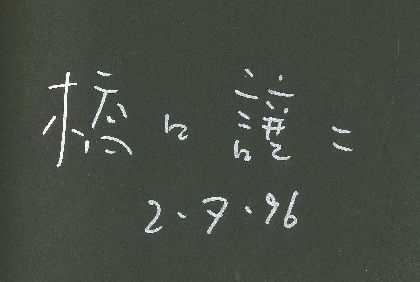 橋口譲二
2・7・96